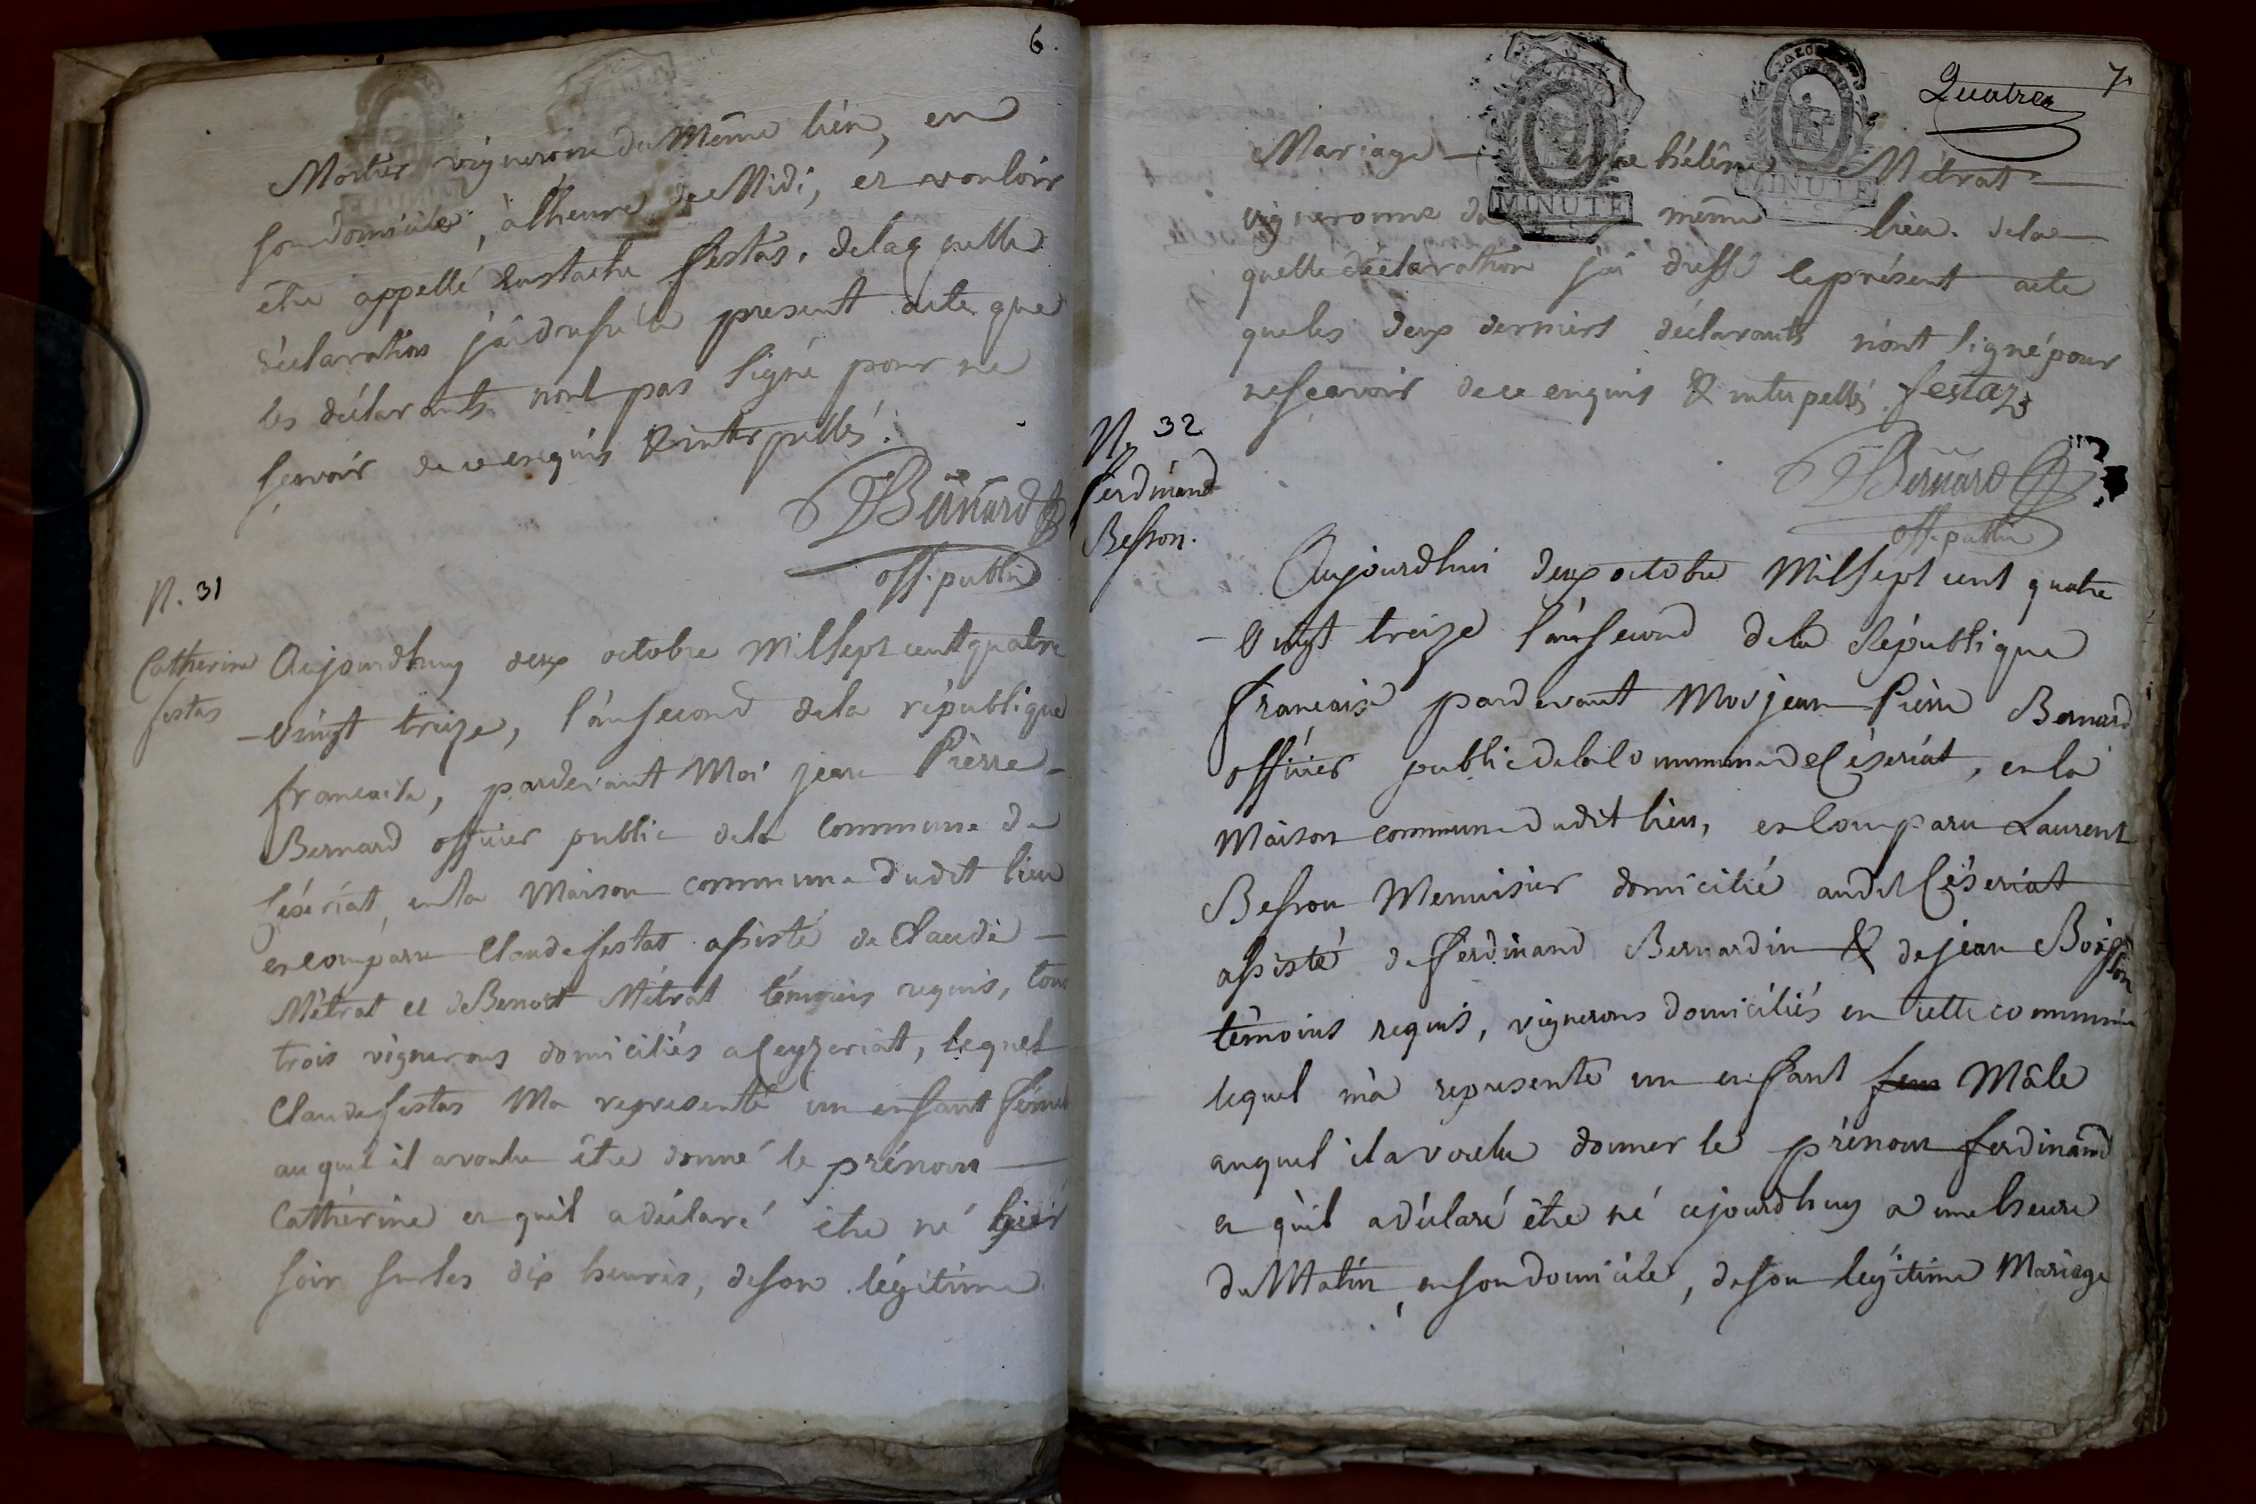 6.
Mortier vigneronne du Même lieu, en
son domicile, à l'heure de Midi, et vouloir
être appellé Eustache festas. de laquelle
déclaration j'ai dressé le présent acte que
les déclarants n'ont pas signé pour ne
sçavoir de ce enquis & interpellés.
Bernard
off. public
N. 31
Catherine
festas
Aujourdhuy deux octobre Mil sept cent quatre
-vingt treize, l'an second de la république
française, pardevant Moi jean Pierre
Bernard officier public de la Commune de
Céseriat, en la Maison commune dudit lieu
est comparu Claude festat assisté de Claude
Métrat et de Benoît Métrat témoins requis, tous
trois vignerons domiciliés a Ceyzeriat, lequel
Claude festas M'a representé un enfant fémel
auquel il a voulu être donné le prénom
Catherine et qu'il a déclaré être né hier
soir sur les dix heures, de son légitime
7
Quatre
MINUTE
MINUTE
Mariage hélène Métrat
vigneronne du même lieu. de la
quelle déclaration j'ai dressé le présent acte
que les deux derniers déclarants n'ont signé pour
ne sçavoir de ce enquis & interpellés. festaz
Bernard
off. public
N. 32
ferdinand
Besson.
Aujourdhui deux octobre Mil sept cent quatre
-vingt treize l'an second de la République
française pardevant Moi jean Pierre Bernard
officier public de la Commune de Céseriat, en la
Maison commune dudit lieu, est Comparu Laurent
Besson Menuisier domicilié audit Céseriat
assisté de ferdinand Bernardin & de jean Boisson
témoins requis, vignerons domiciliés en cette commune
lequel m'a representé un enfant fem Mâle
auquel il a voulu donner le prénom ferdinand
et qu'il a déclaré être né cejourdhuy a une heure
du Matin, en son domicile, de son legitime Mariage